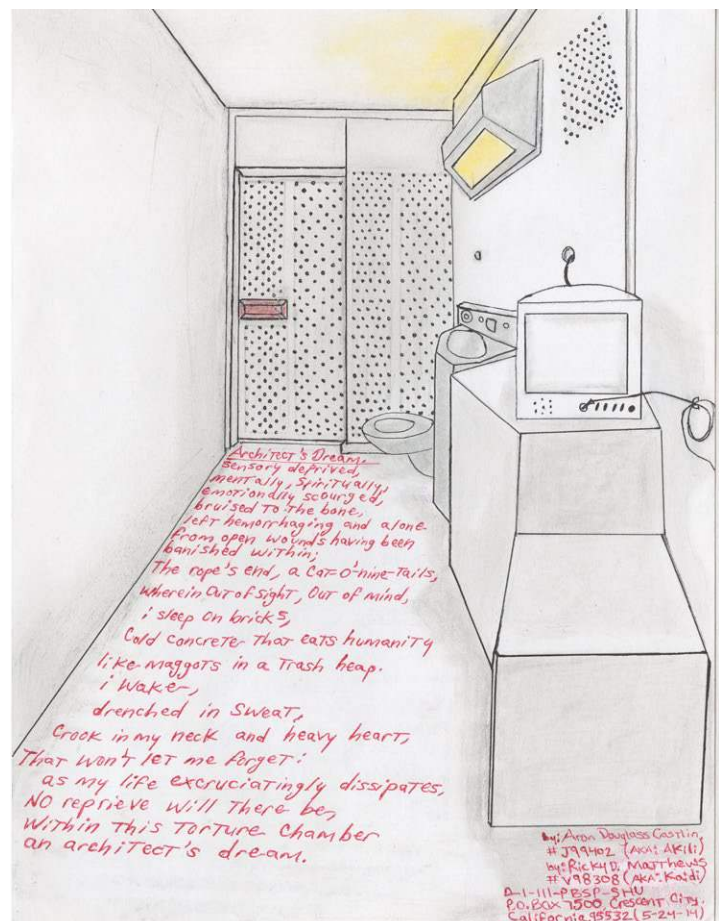 Architect's Dream.
sensory deprived,
mentally, Spiritually,
emotionally scourged,
bruised to the bone,
left hemorrhaging and alone
from open wounds having been
banished within;
The rope's end, a Cat-O'-nine-Tails,
wherein Out of sight, Out of mind,
i sleep on bricks,
Cold concrete that eats humanity
like maggots in a Trash heap.
i wake,
drenched in sweat,
Crook in my neck and heavy heart,
That won't let me forget:
as my life excruciatingly dissipates,
NO reprieve will There be,
Within This Torture Chamber
an architect's dream.
by: Aron Douglass Gastlin,
# J99402 (AKA: AKili)
by: Ricky D. Matthews
# V98308 (AKA: Kaidi)
D-1-111-PBSP-SHU
P.O. Box 7500, Crescent City,
California 95532 (5-24-14)